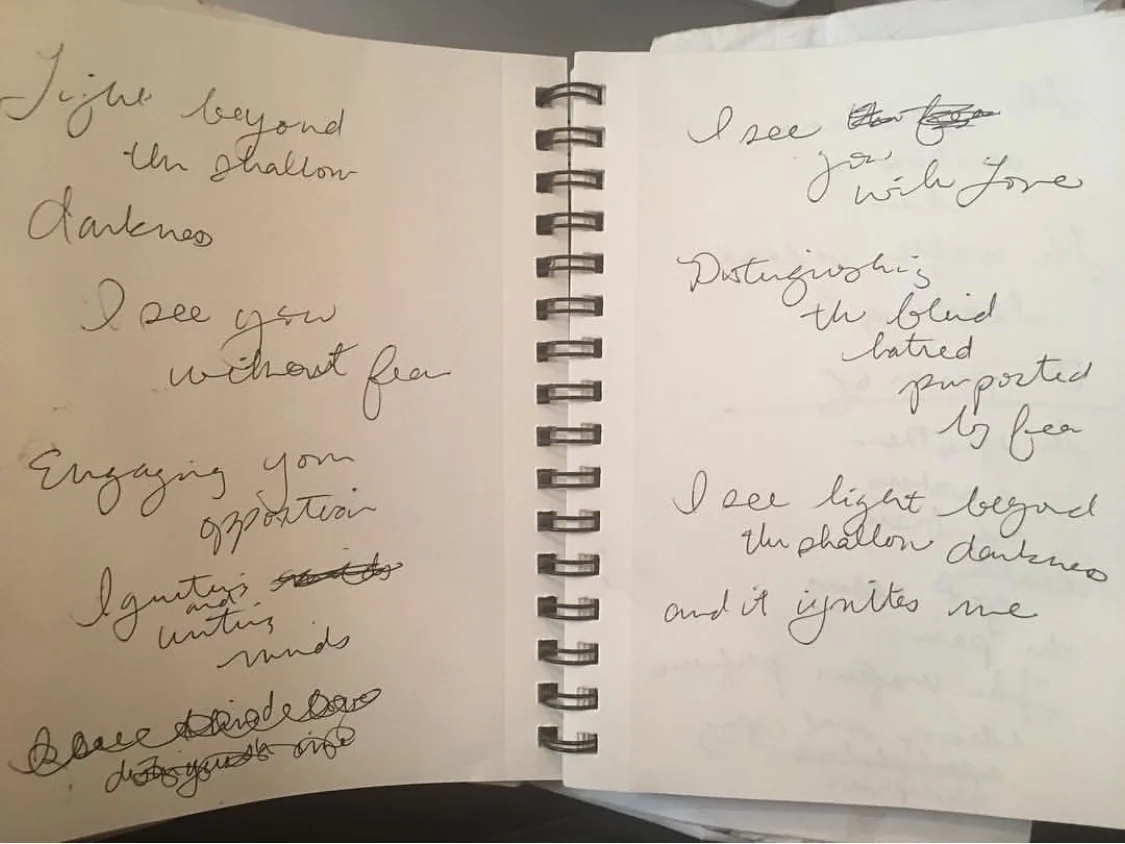 Light beyond
the shallow
darkness
I see you
without fear
Engaging your
opposition
Igniting
and
uniting
minds
I see
you
with Love
Distinguishing
the blind
hatred
purported
by fear
I see light beyond
the shallow darkness
and it ignites me